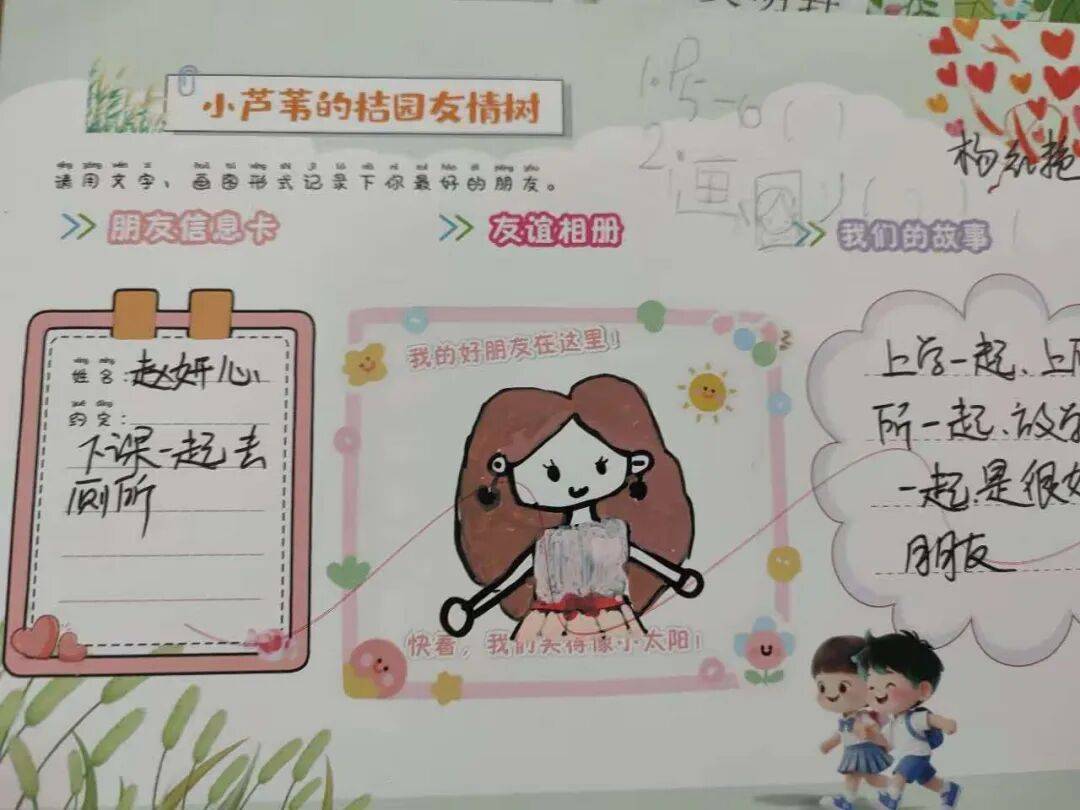 小芦苇的桔园友情树
1.P5-6( )
2.画
qǐng yòng wén zì huà tú xíng shì jì lù xià nǐ zuì hǎo de péng yǒu
请用文字、画图形式记录下你最好的朋友。
朋友信息卡
友谊相册
我们的故事
xìng míng
姓名:赵妍心
yuē dìng
约定:
下课一起去
厕所
我的好朋友在这里!
快看,我们笑得像小太阳!
上学一起、上厕
所一起、放学
一起是很好
朋友